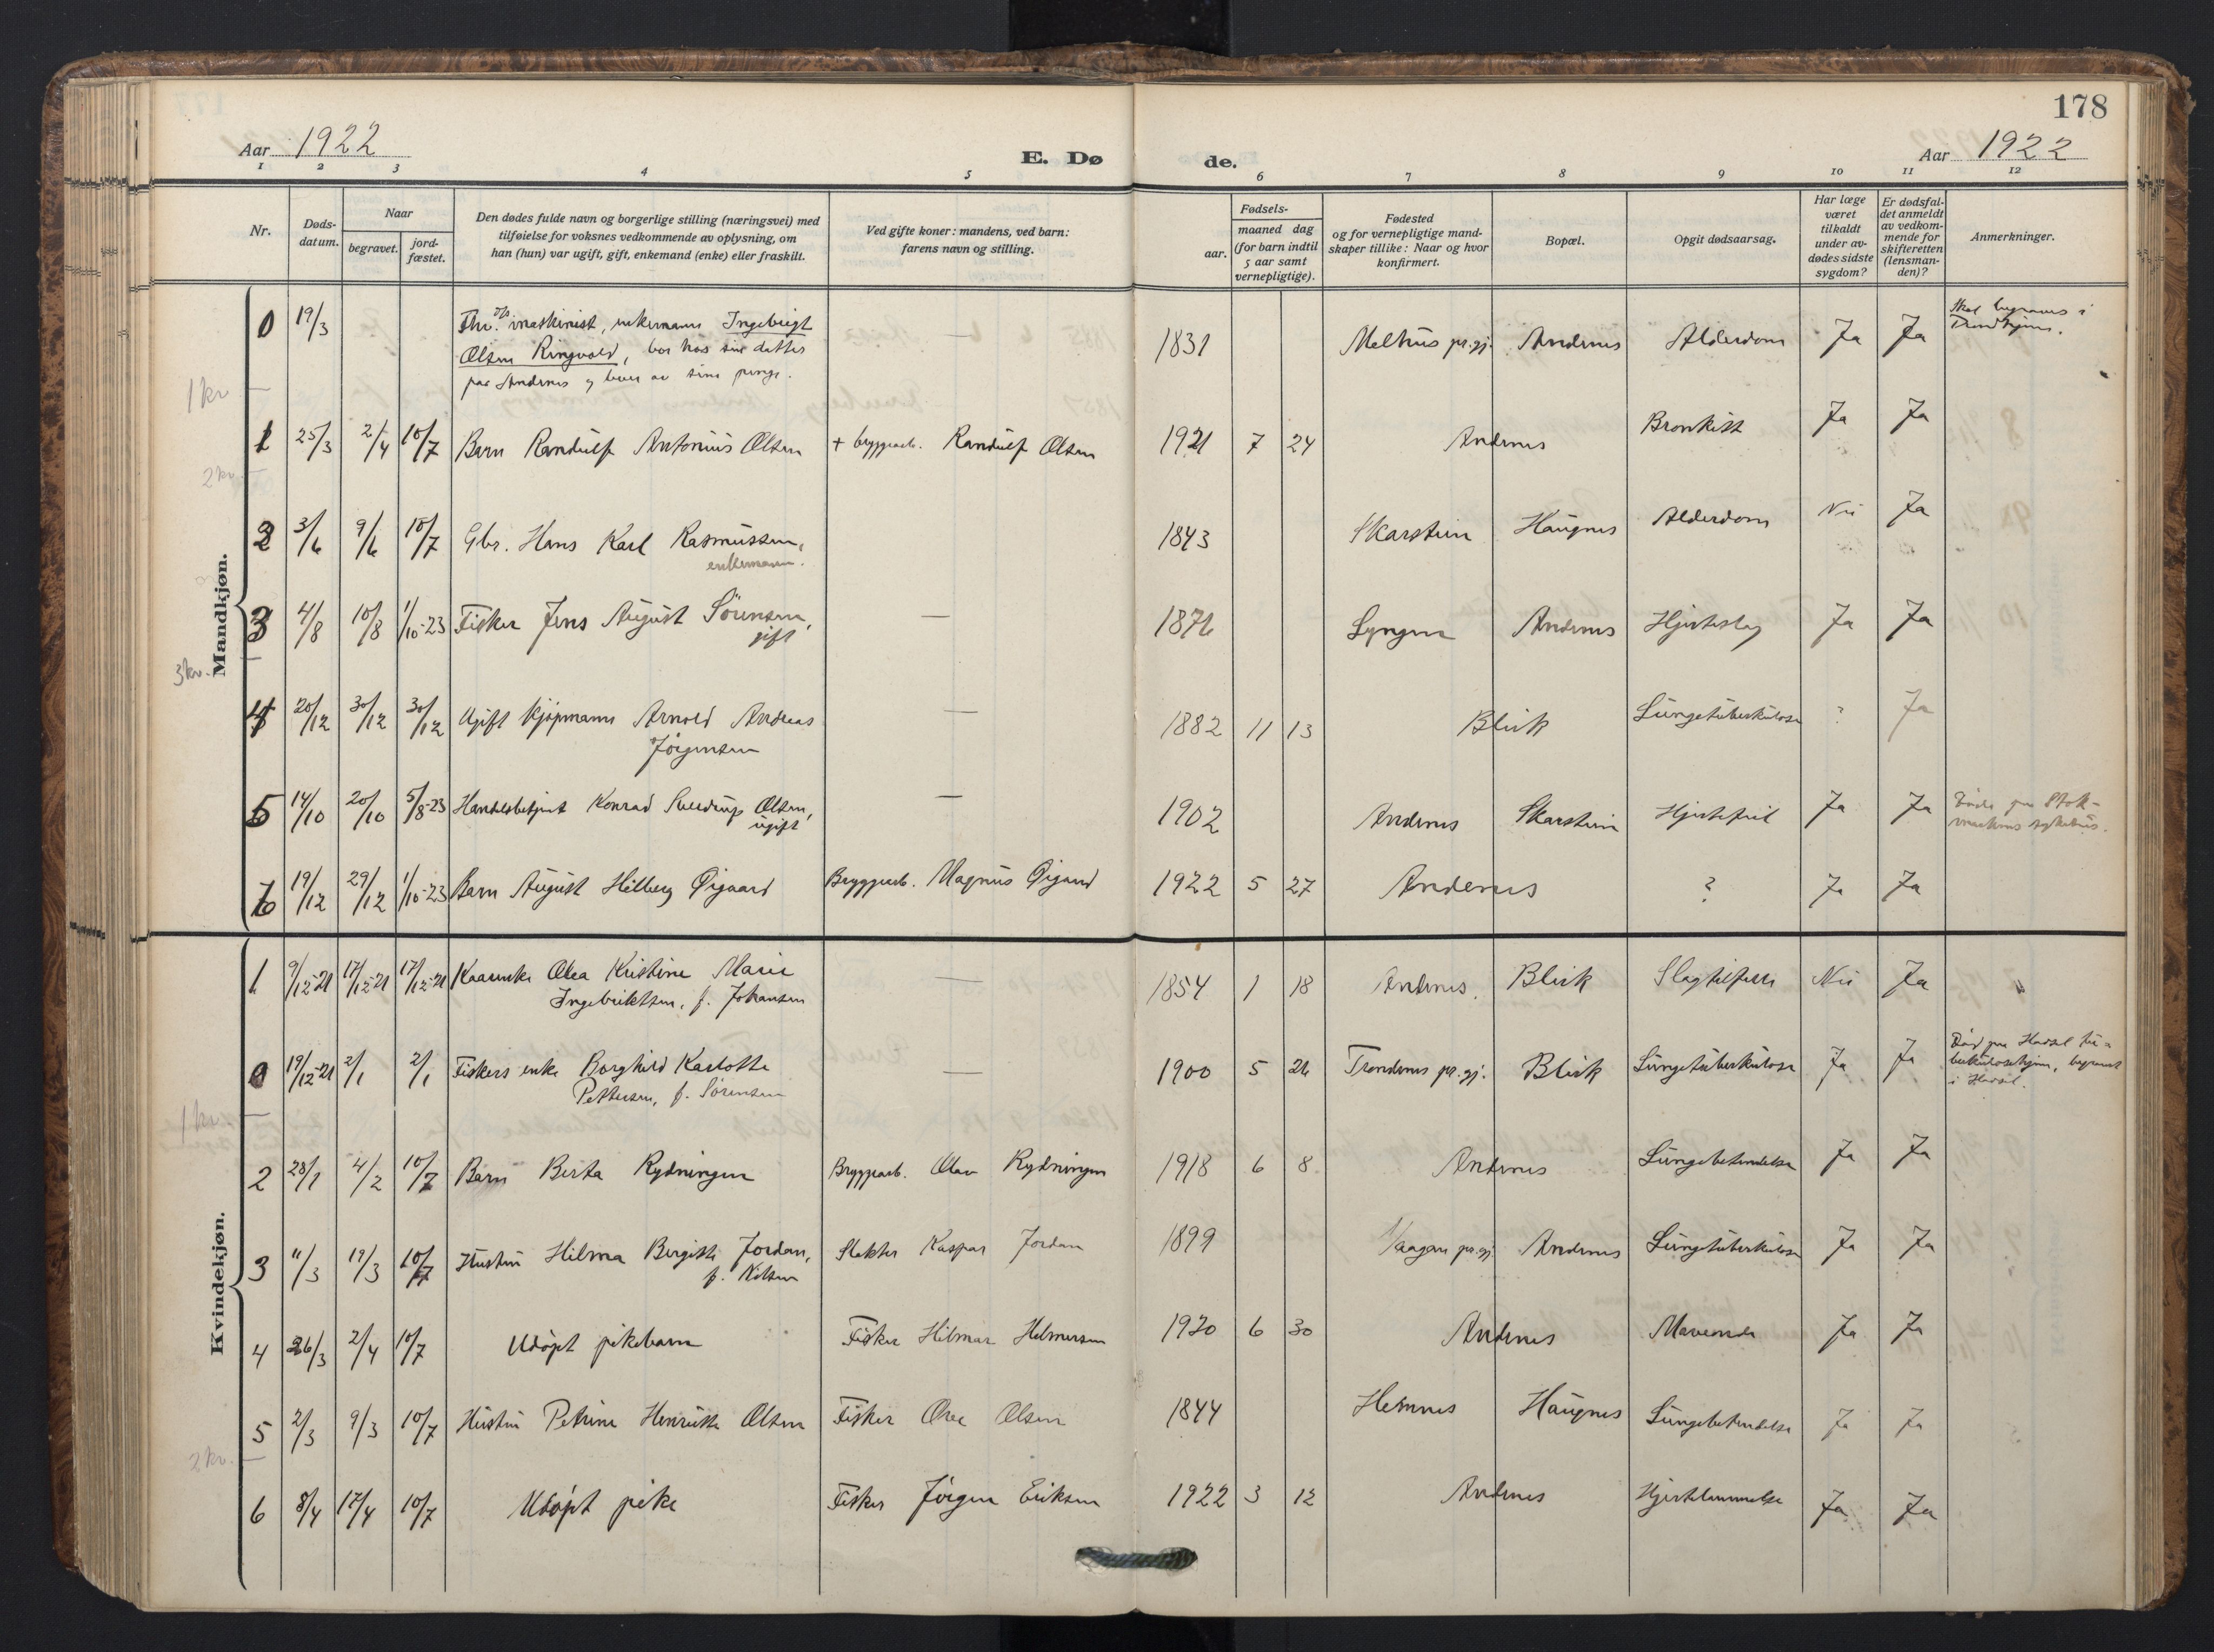 178
Aar 1922
E. Dø
de.
Aar 1922
1 2 3 4 5 6 7 8 9 10 11 12
Nr.
Døds-
datum.
Naar
begravet.
jord-
fæstet.
Den dødes fulde navn og borgerlige stilling (næringsvei) med
tilføielse for voksnes vedkommende av oplysning, om
han (hun) var ugift, gift, enkemand (enke) eller fraskilt.
Ved gifte koner: mandens, ved barn:
farens navn og stilling.
Fødsels-
aar.
maaned dag
(for barn indtil
5 aar samt
vernepligtige).
Fødested
og for vernepligtige mand-
skaper tillike: Naar og hvor
konfirmert.
Bopæl.
Opgit dødsaarsag.
Har læge
været
tilkaldt
under av-
dødes sidste
sygdom?
Er dødsfal-
det anmeldt
av vedkom-
mende for
skifteretten
(lensman-
den)?
Anmerkninger.
Mandkjøn.
0 19/3 maskinist, enkemann Ingebrigt
Olsen Ringvold, bor hos sin datter
paa Andenes og lever av sine penge.
— 1831 Melhus pr.gj. Andenes Alderdom Ja Ja Skal begraves i
Trondhjem.
1 kv.
1 25/3 2/4 10/7 Barn Randulf Antonius Olsen + bryggearb. Randulf Olsen 1921 7 24 Andenes Bronkitt Ja Ja
2 kv.
2 3/6 9/6 10/7 Gbr. Hans Karl Rasmussen,
enkemann.
1843 Skarstein Haugnes Alderdom Nei Ja
3 4/8 10/8 1/10-23 Fisker Jens August Sørensen,
gift
— 1876 Lyngen Andenes Hjerteslag Ja Ja
3 kv.
4 20/12 30/12 30/12 Ugift kjøpmann Arnold Andreas
Jørgensen
— 1882 11 13 Bleik Lungetuberkulose ? Ja
5 14/10 20/10 5/8-23 Handelsbetjent Konrad Sverdrup Olsen,
ugift
— 1902 Andenes Skarstein Hjertefeil Ja Ja Døde paa Stok-
marknes sykehus.
6 19/12 29/12 1/10-23 Barn August Hilberg Øigaard Bryggearb. Magnus Øigaard 1922 5 27 Andenes ? Ja Ja
Kvindekjøn.
1 9/12-21 17/12-21 17/12-21 Kaarenke Olea Kristine Marie
Ingebriktsen, f. Johansen
— 1854 1 18 Andenes. Bleik Slagtilfelle Nei Ja "
0 19/12-21 2/1 2/1 Fiskers enke Borghild Karlotte
Pettersen, f. Sørensen
— 1900 5 26 Trondenes pr.gj. Bleik Lungetuberkulose Ja Ja Død paa Hadsel tu-
berkulosehjem, begravet
i Hadsel.
1 kv.
2 28/1 4/2 10/7 Barn Berta Rydningen Bryggearb. Olav Rydningen 1918 6 8 Andenes Lungebetendelse Ja Ja
3 11/3 19/3 10/7 Hustru Hilma Bergitte Jordan,
f. Nilsen
Slakter Kaspar Jordan 1899 Vaagan pr.gj. Andenes Lungetuberkulose Ja Ja
4 26/3 2/4 10/7 Udøpt pikebarn Fisker Hilmar Helmersen 1920 6 30 Andenes Maveonde Ja Ja
5 2/3 9/3 10/7 Hustru Petrine Henrikke Olsen Fisker Ole Olsen 1844 Hemnes Haugnes Lungebetendelse Ja Ja
2 kv.
6 8/4 17/4 10/7 Udøpt pike Fisker Jørgen Eriksen 1922 3 12 Andenes Hjertelammelse Ja Ja